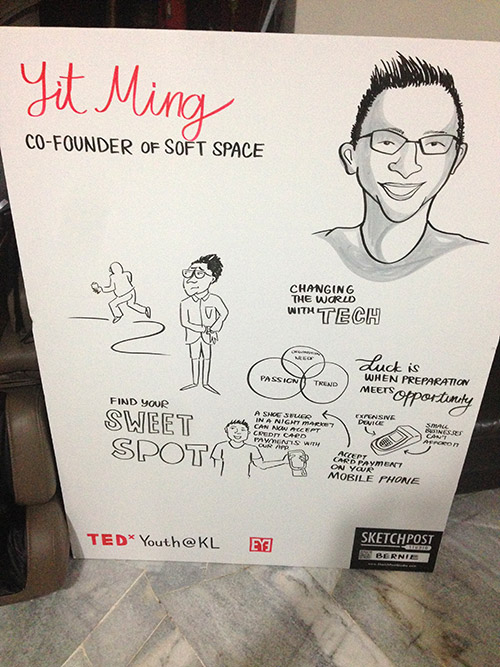 Yit Ming
CO-FOUNDER OF SOFT SPACE
CHANGING
THE WORLD
WITH TECH
NEED
PASSION
TREND
Luck is
WHEN PREPARATION
MEETS Opportunity
FIND YOUR
SWEET
SPOT
A SHOE SELLER
IN A NIGHT MARKET
CAN NOW ACCEPT
CREDIT CARD
PAYMENTS WITH
OUR APP
EXPENSIVE
DEVICE
SMALL
BUSINESSES
CAN'T
AFFORD IT
ACCEPT
CARD PAYMENT
ON YOUR
MOBILE PHONE
TEDx Youth@KL
EYE
SKETCHPOST
STUDIO
BERNIE